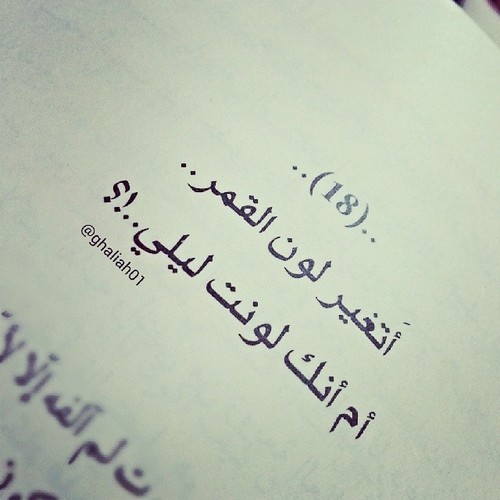 ..(18)..
أَتغير لون القمر..
أم أنك لونت ليلي..!؟
@ghaliah01
ت لم آلفه إلّا لأ